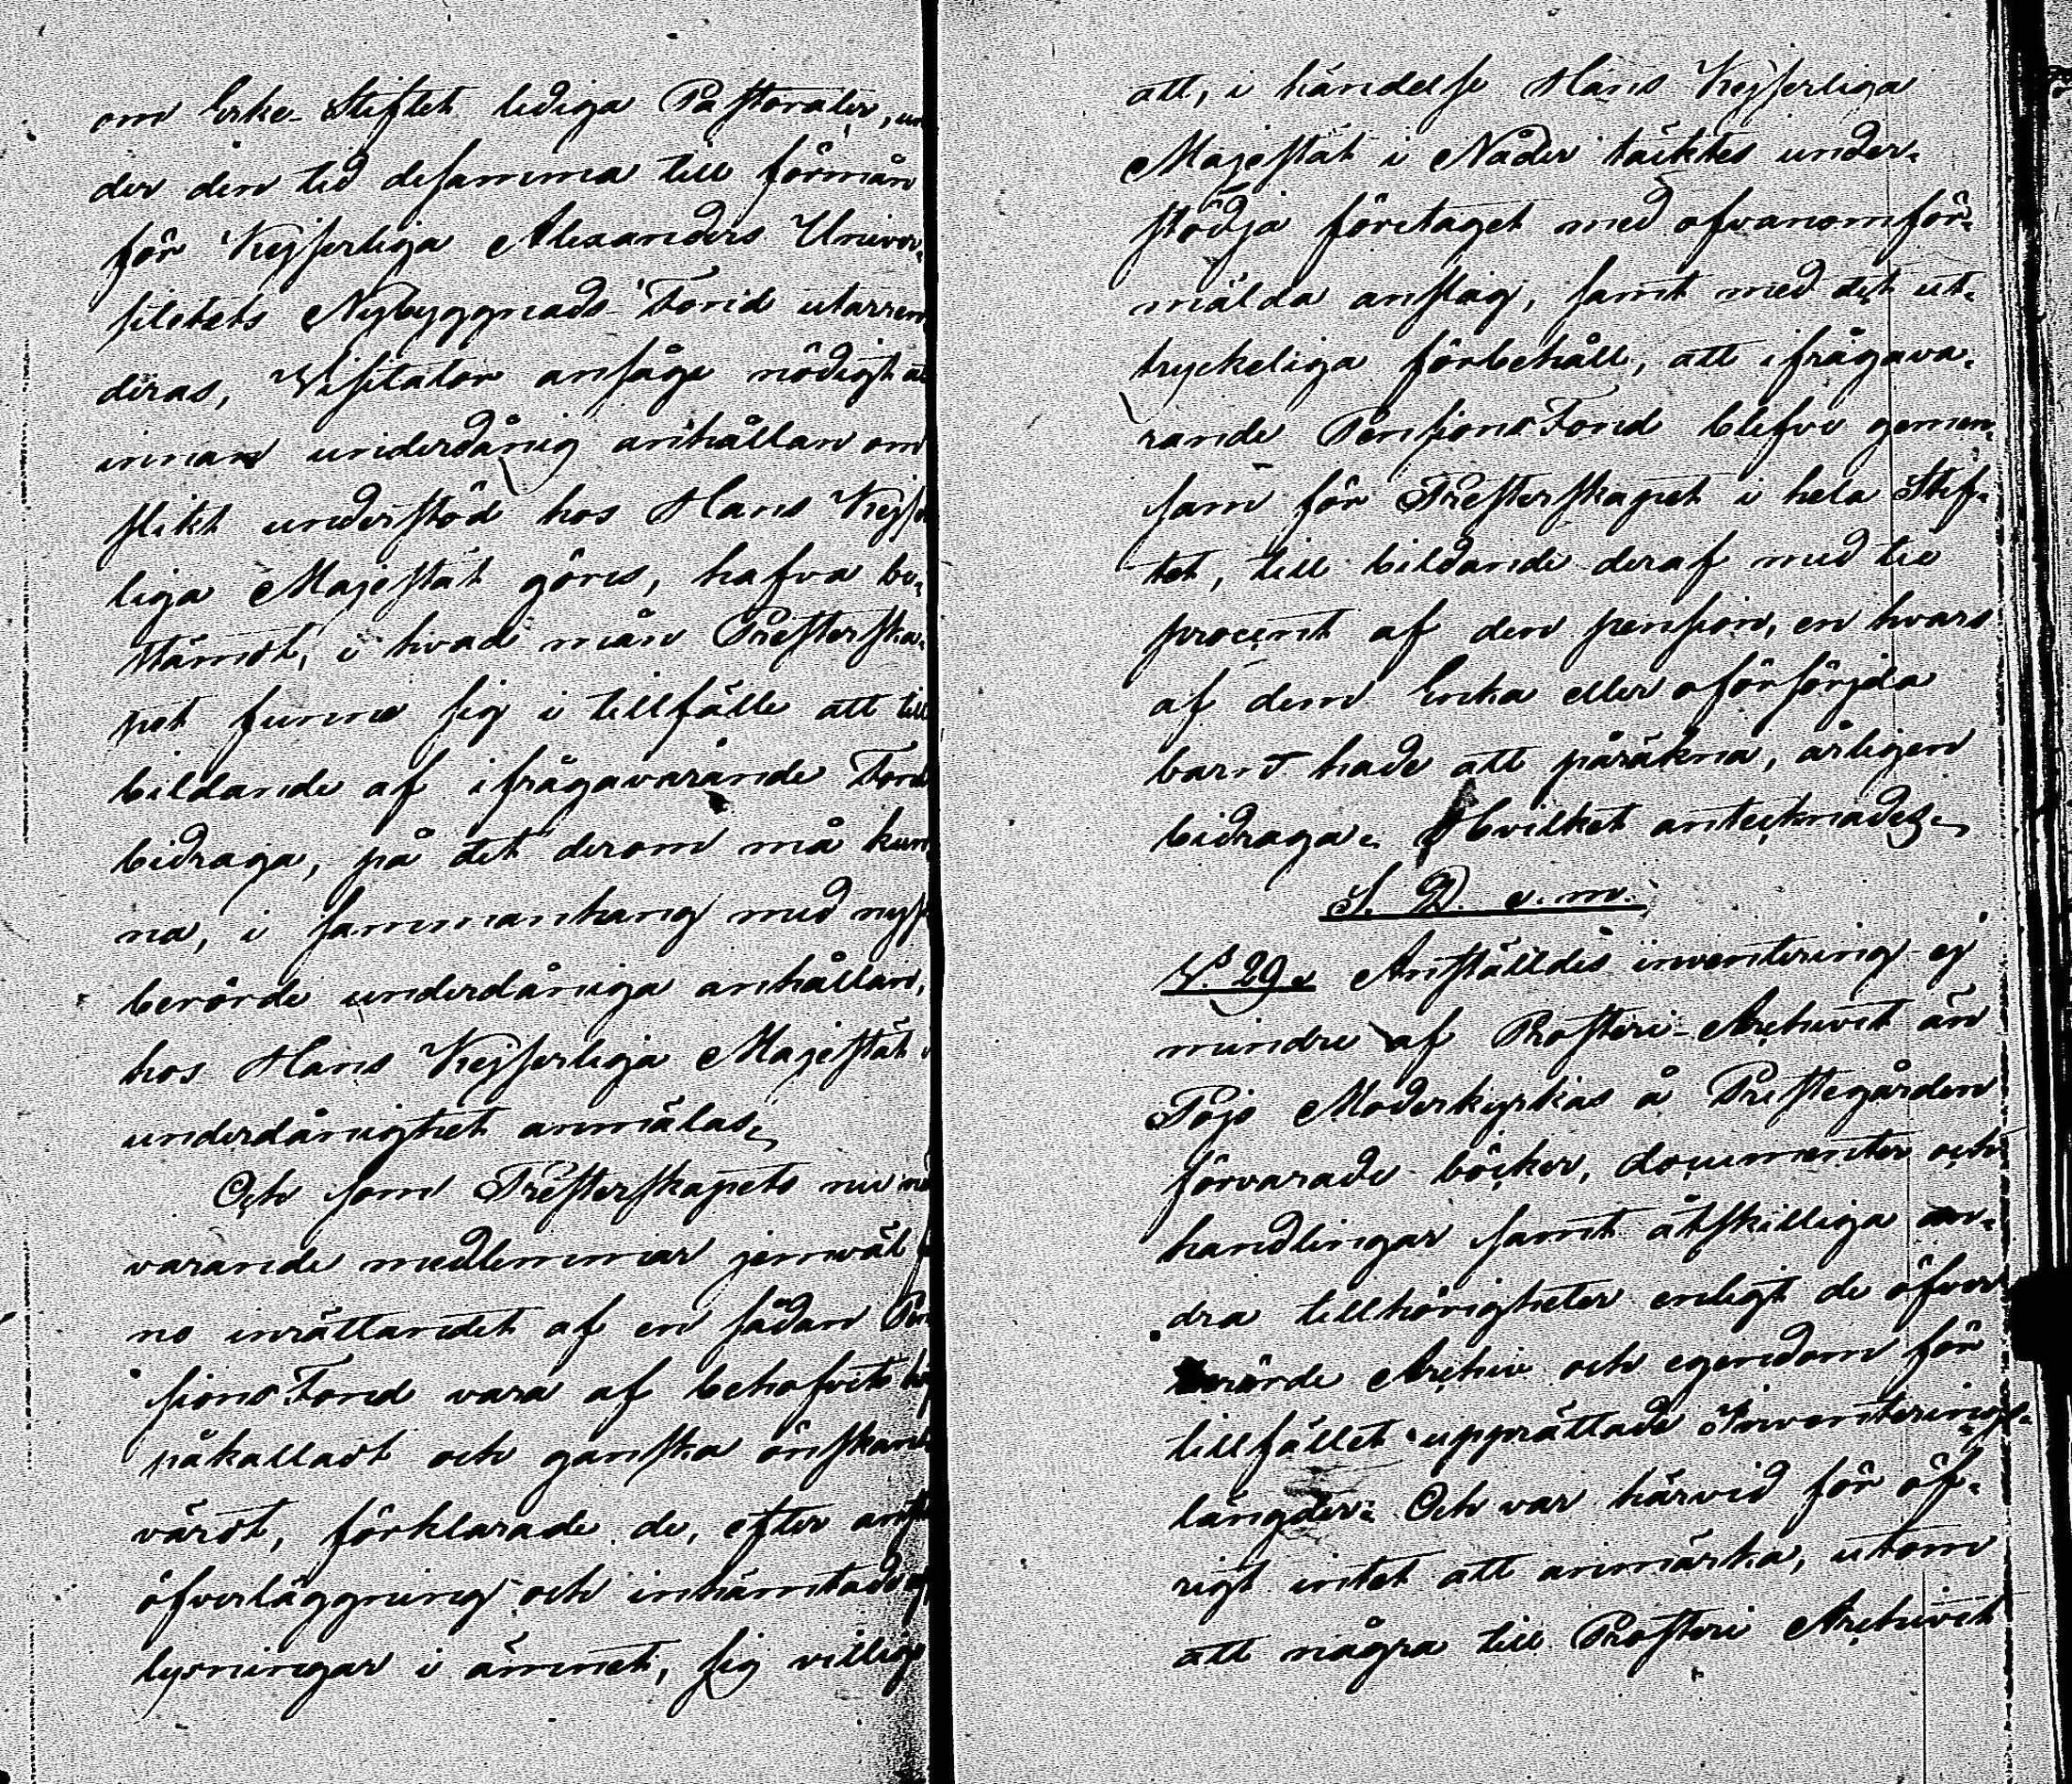 om Erke-Stiftet lediga Pastorater, un
der den tid desamma till förmån
för Kejserliga Alexanders Univer-
sitetets Nybyggnads-Fond utarren
deras, Visitator ansåge nödigt at
innan underdånig anhållan om
slikt understöd hos Hans Kejse
liga Majestät göres, hafva be-
stämdt, i hvad mån Presterska-
pet funne sig i tillfälle att till
bildande af ifrågavarande Fond
bidraga, på det derom må kun
na, i sammanhang med nyss
berörde underdåniga anhållan,
hos Hans Kejserliga Majestät i
underdånighet anmälas.
Och som Presterskapets nu när
varande medlemmar jemväl fun
no inrättandet af en sådan Pen
sions Fond vara af behofvet hög
påkalladt och ganska önskans
värdt, förklarade de, efter anstä
öfverläggning och inhämtade upp
lysningar i ämnet, sig villige
att, i händelse Hans Kejserliga
Majestät i Nåder täcktes under-
stödja företaget med ofvanomför-
mälda anslag, samt med det ut-
tryckeliga förbehåll, att ifrågava-
rande Pensions Fond blefve gemen-
sam för Presterskapet i hela Stif-
tet, till bildande deraf med tio
procent af den pension, en hvars
af dem Enka eller oförsörjda
barn hade att påräkna, årligen
bidraga. Hvilket antecknades.
S. D. e. m.
§ 29. Anställdes inventering ej
mindre af Prosteri-Archivet än
Pojo Moderkyrkas å Prestegården
förvarade böcker, documenter och
handlingar samt åtskilliga an-
dra tillhörigheter enligt de öfver
berörde Archiv och egendom för
tillfället upprättade Inventerings-
längder. Och var härvid för öf-
rigt intet att anmärka, utom
att några till Prosteri Archivet